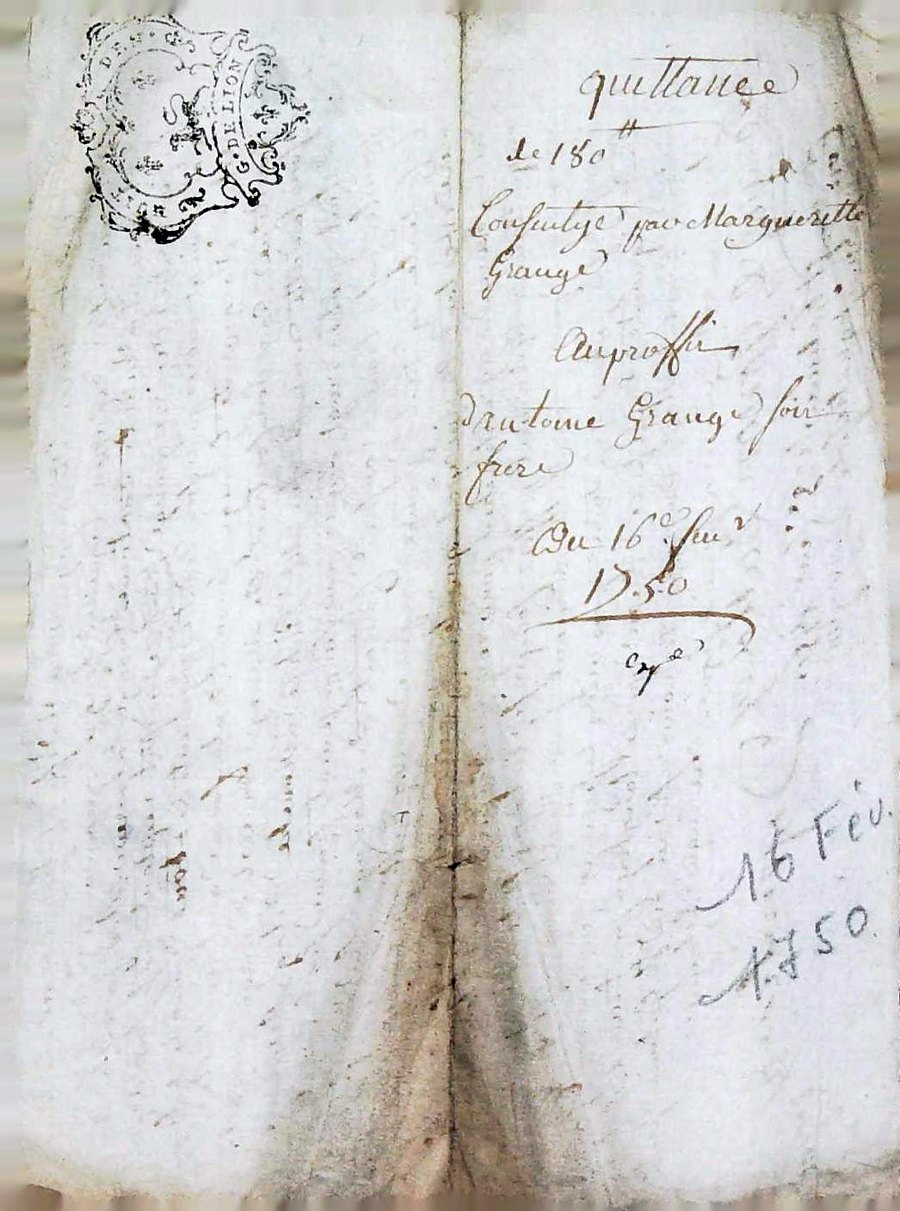 G. DE LION
quittance
de 180 ₶
Consentye par Margueritte
Grange
Au proffit
d'antoine Grange son
frere
Du 16e feur
1750
16 Fév.
1750